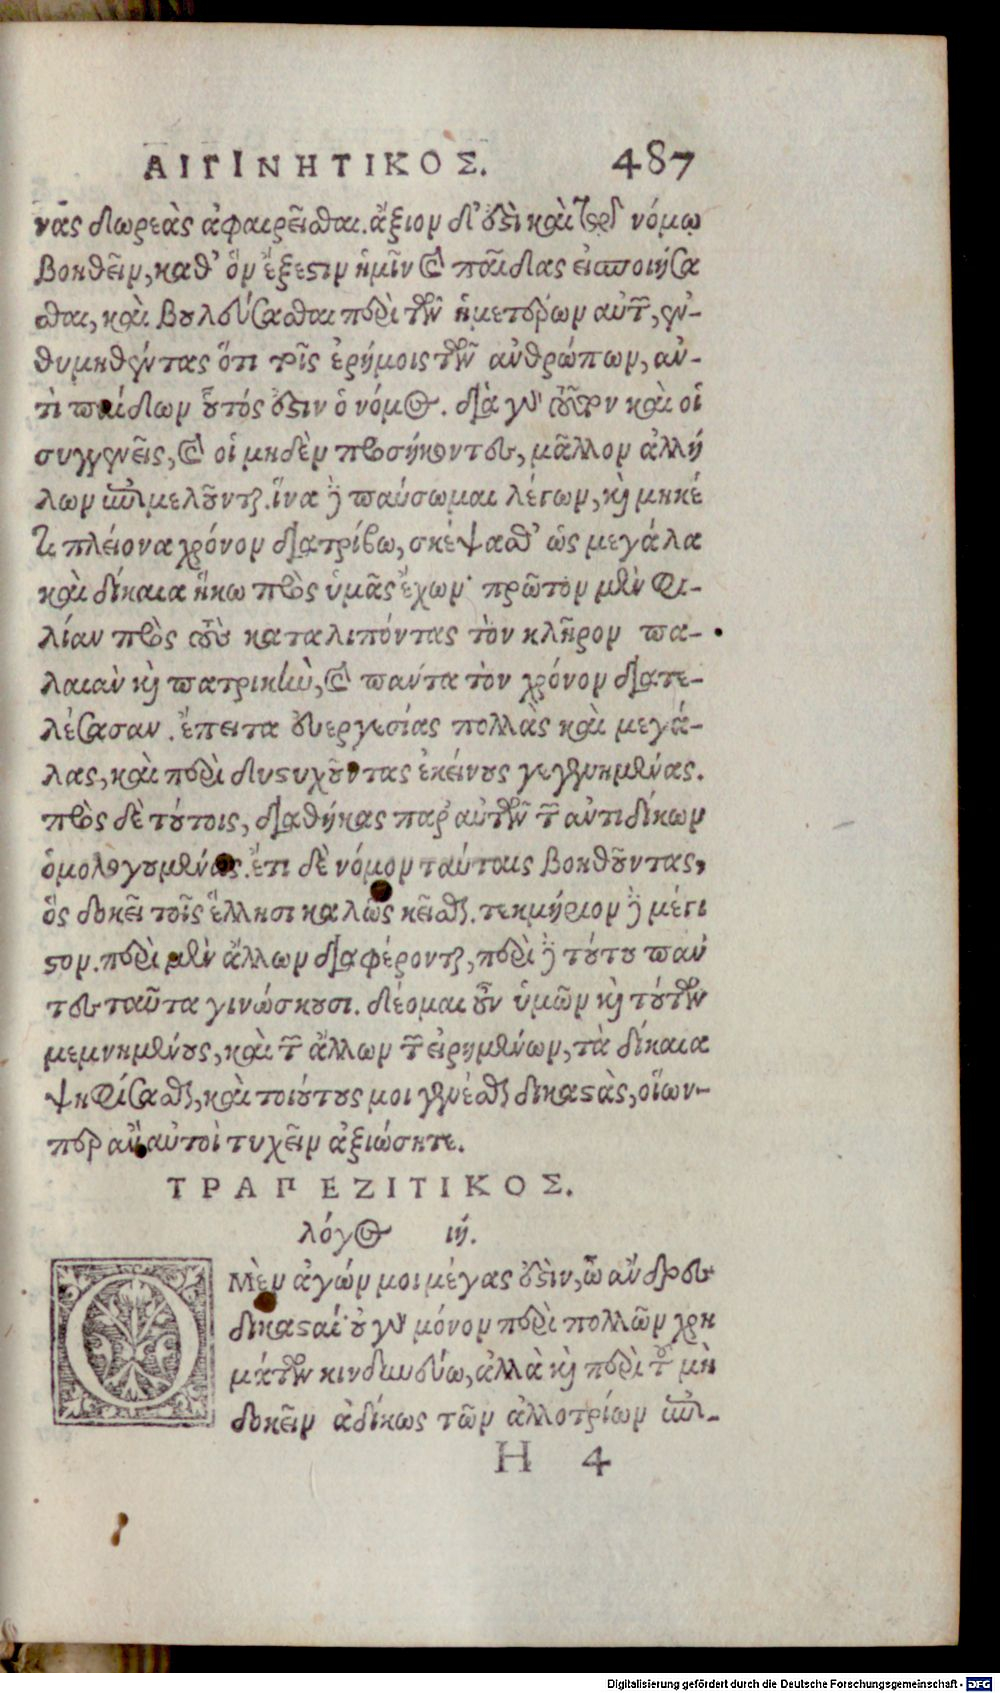 ΑΙΓΙΝΗΤΙΚΟΣ. 487
νας δωρεὰς ἀφαιρεῖσθαι. ἄξιον δ' ἐστὶ καὶ τῷ νόμῳ
βοηθεῖν, καθ' ὃν ἔξεστιν ἡμῖν καὶ παῖδας εἰσποιήσα
σθαι, καὶ βουλεύσασθαι περὶ τῶν ἡμετέρων αὐτῶν, ἐν-
θυμηθέντας ὅτι τοῖς ἐρήμοις τῶν ἀνθρώπων, ἀν-
τὶ παίδων οὗτός ἐστιν ὁ νόμος. διὰ γὰρ τοῦτον καὶ οἱ
συγγενεῖς, καὶ οἱ μηδὲν προσήκοντες, μᾶλλον ἀλλή
λων ἐπιμελοῦνται. ἵνα δὲ παύσωμαι λέγων, καὶ μηκέ
τι πλείονα χρόνον διατρίβω, σκέψασθ' ὡς μεγάλα
καὶ δίκαια ἥκω πρὸς ὑμᾶς ἔχων· πρῶτον μὲν φι-
λίαν πρὸς τοὺς καταλιπόντας τὸν κλῆρον πα-
λαιὰν καὶ πατρικὴν, καὶ πάντα τὸν χρόνον διατε-
λέσασαν. ἔπειτα εὐεργεσίας πολλὰς καὶ μεγά-
λας, καὶ περὶ δυστυχοῦντας ἐκείνους γεγενημένας.
πρὸς δὲ τούτοις, διαθήκας παρ' αὐτῶν τῶν ἀντιδίκων
ὁμολογουμένας. ἔτι δὲ νόμον ταύταις βοηθοῦντας,
ὃς δοκεῖ τοῖς ἕλλησι καλῶς κεῖσθαι. τεκμήριον δὲ μέγι
στον. περὶ μὲν ἄλλων διαφέρονται, περὶ δὲ τούτου πάν
τες ταῦτα γινώσκουσι. δέομαι οὖν ὑμῶν καὶ τούτων
μεμνημένους, καὶ τῶν ἄλλων τῶν εἰρημένων, τὰ δίκαια
ψηφίσασθαι, καὶ τοιούτους μοι γενέσθαι δικαστὰς, οἵων-
περ ἂν αὐτοὶ τυχεῖν ἀξιώσητε.
ΤΡΑΠΕΖΙΤΙΚΟΣ.
λόγος ιή.
Ο Μὲν ἀγών μοι μέγας ἐστὶν, ὦ ἄνδρες
δικασταί· οὐ γὰρ μόνον περὶ πολλῶν χρη
μάτων κινδυνεύω, ἀλλὰ καὶ περὶ τοῦ μὴ
δοκεῖν ἀδίκως τῶν ἀλλοτρίων ἐπι-
H 4
Digitalisierung gefördert durch die Deutsche Forschungsgemeinschaft - DFG